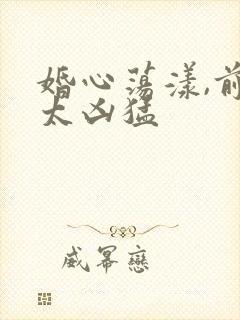 婚心荡漾,前
太凶猛
威幂戀